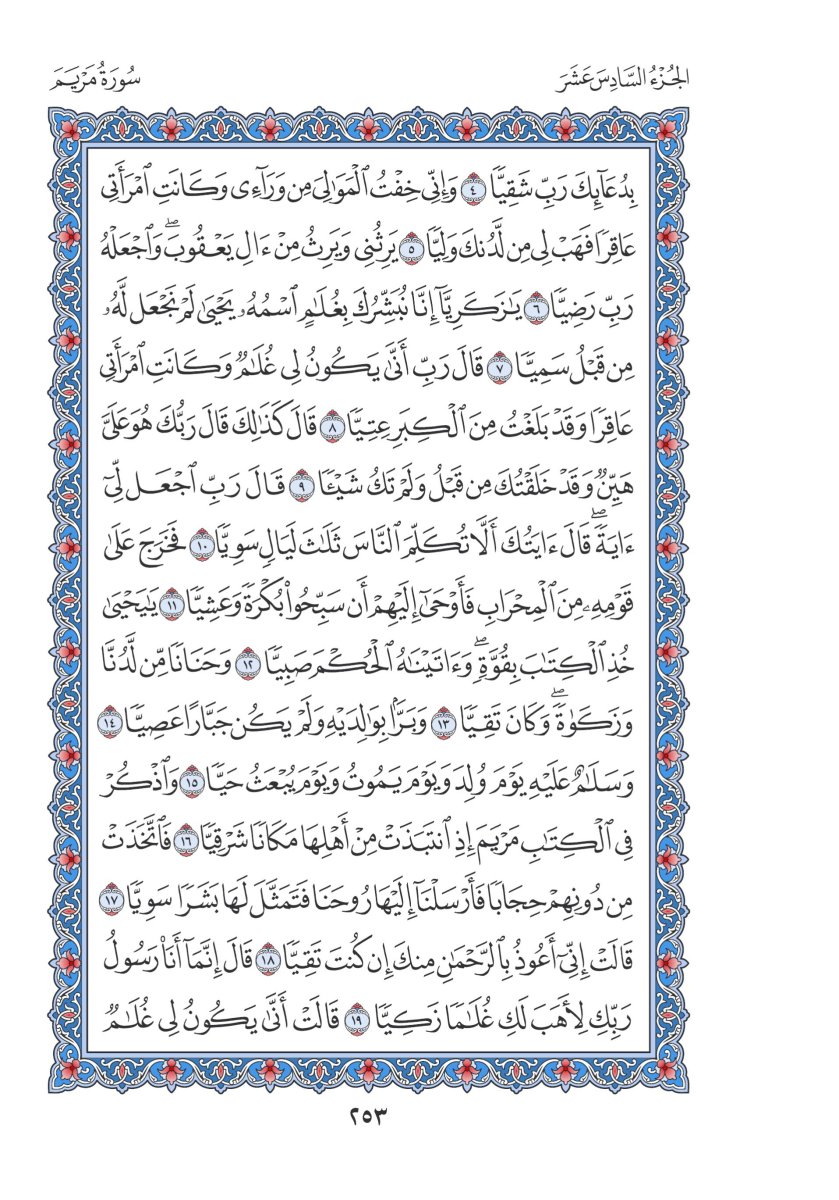 الجُزْءُ السَّادِسَ عَشَرَ
سُورَةُ مَرْيَمَ
بِدُعَآئِكَ رَبِّ شَقِيّٗا ٤ وَإِنِّي خِفۡتُ ٱلۡمَوَٰلِيَ مِن وَرَآءِي وَكَانَتِ ٱمۡرَأَتِي
عَاقِرٗا فَهَبۡ لِي مِن لَّدُنكَ وَلِيّٗا ٥ يَرِثُنِي وَيَرِثُ مِنۡ ءَالِ يَعۡقُوبَۖ وَٱجۡعَلۡهُ
رَبِّ رَضِيّٗا ٦ يَٰزَكَرِيَّآ إِنَّا نُبَشِّرُكَ بِغُلَٰمٍ ٱسۡمُهُۥ يَحۡيَىٰ لَمۡ نَجۡعَل لَّهُۥ
مِن قَبۡلُ سَمِيّٗا ٧ قَالَ رَبِّ أَنَّىٰ يَكُونُ لِي غُلَٰمٞ وَكَانَتِ ٱمۡرَأَتِي
عَاقِرٗا وَقَدۡ بَلَغۡتُ مِنَ ٱلۡكِبَرِ عِتِيّٗا ٨ قَالَ كَذَٰلِكَ قَالَ رَبُّكَ هُوَ عَلَيَّ
هَيِّنٞ وَقَدۡ خَلَقۡتُكَ مِن قَبۡلُ وَلَمۡ تَكُ شَيۡـٔٗا ٩ قَالَ رَبِّ ٱجۡعَل لِّيٓ
ءَايَةٗۖ قَالَ ءَايَتُكَ أَلَّا تُكَلِّمَ ٱلنَّاسَ ثَلَٰثَ لَيَالٖ سَوِيّٗا ١٠ فَخَرَجَ عَلَىٰ
قَوۡمِهِۦ مِنَ ٱلۡمِحۡرَابِ فَأَوۡحَىٰٓ إِلَيۡهِمۡ أَن سَبِّحُواْ بُكۡرَةٗ وَعَشِيّٗا ١١ يَٰيَحۡيَىٰ
خُذِ ٱلۡكِتَٰبَ بِقُوَّةٖۖ وَءَاتَيۡنَٰهُ ٱلۡحُكۡمَ صَبِيّٗا ١٢ وَحَنَانٗا مِّن لَّدُنَّا
وَزَكَوٰةٗۖ وَكَانَ تَقِيّٗا ١٣ وَبَرَّۢا بِوَٰلِدَيۡهِ وَلَمۡ يَكُن جَبَّارًا عَصِيّٗا ١٤
وَسَلَٰمٌ عَلَيۡهِ يَوۡمَ وُلِدَ وَيَوۡمَ يَمُوتُ وَيَوۡمَ يُبۡعَثُ حَيّٗا ١٥ وَٱذۡكُرۡ
فِي ٱلۡكِتَٰبِ مَرۡيَمَ إِذِ ٱنتَبَذَتۡ مِنۡ أَهۡلِهَا مَكَانٗا شَرۡقِيّٗا ١٦ فَٱتَّخَذَتۡ
مِن دُونِهِمۡ حِجَابٗا فَأَرۡسَلۡنَآ إِلَيۡهَا رُوحَنَا فَتَمَثَّلَ لَهَا بَشَرٗا سَوِيّٗا ١٧
قَالَتۡ إِنِّيٓ أَعُوذُ بِٱلرَّحۡمَٰنِ مِنكَ إِن كُنتَ تَقِيّٗا ١٨ قَالَ إِنَّمَآ أَنَا۠ رَسُولُ
رَبِّكِ لِأَهَبَ لَكِ غُلَٰمٗا زَكِيّٗا ١٩ قَالَتۡ أَنَّىٰ يَكُونُ لِي غُلَٰمٞ
٢٥٣